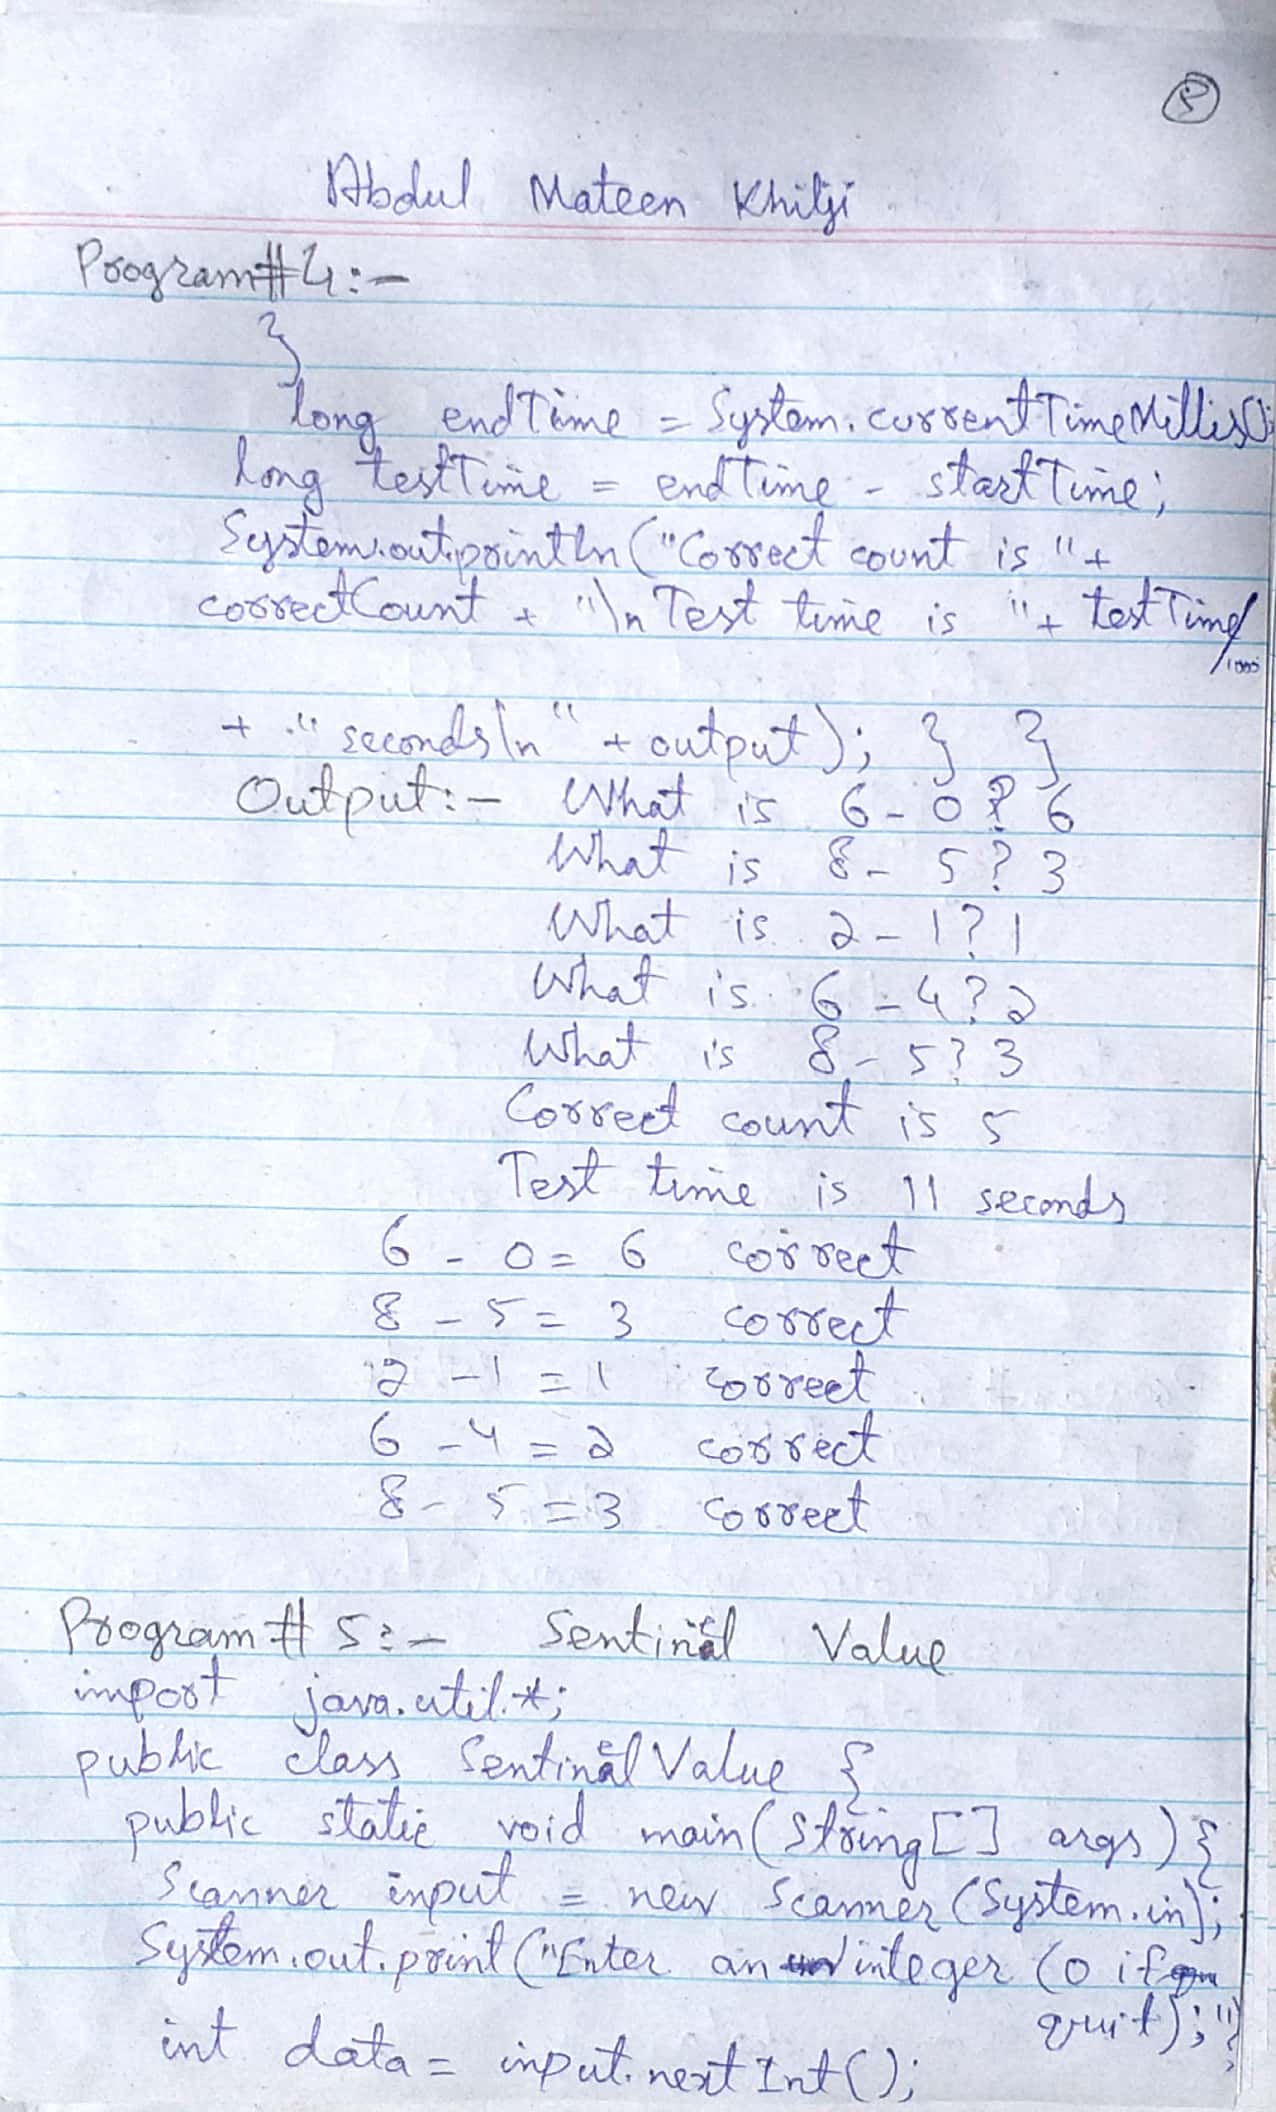 5
Abdul Mateen Khilji
Program#4:-
}
long endTime = System.currentTimeMillis();
long testTime = endTime - startTime;
System.out.println("Correct count is "+
correctCount + "\n Test time is "+ testTime/1000
+ " seconds\n" + output); } }
Output:- What is 6-0? 6
What is 8-5? 3
What is 2-1? 1
What is 6-4? 2
What is 8-5? 3
Correct count is 5
Test time is 11 seconds
6 - 0 = 6 correct
8 - 5 = 3 correct
2 - 1 = 1 correct
6 - 4 = 2 correct
8 - 5 = 3 correct
Program # 5:- Sentinel Value
import java.util.*;
public class SentinelValue {
public static void main(String[] args){
Scanner input = new Scanner(System.in);
System.out.print("Enter an integer (0 if
quit);"
int data = input.nextInt();